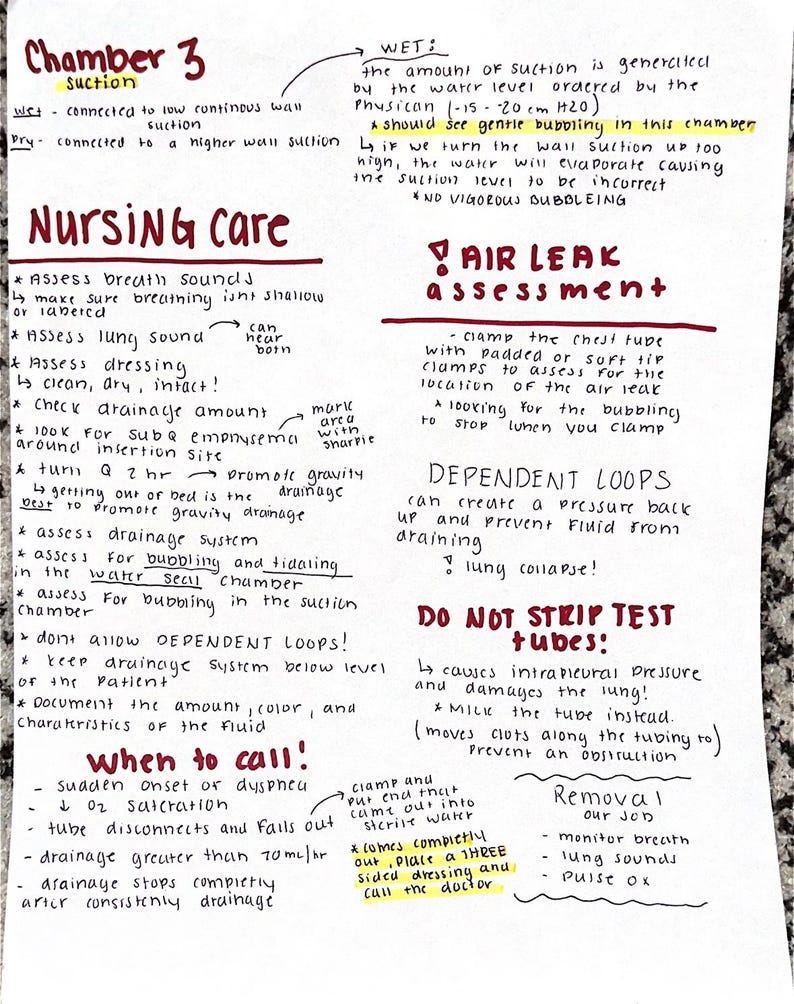 Chamber 3
suction
wet - connected to low continous wall
suction
Dry - connected to a higher wall suction
WET:
the amount of suction is generated
by the water level ordered by the
Physican (-15 - -20 cm H20)
* should see gentle bubbling in this chamber
↳ if we turn the wall suction up too
high, the water will evaporate causing
the suction level to be incorrect
* NO VIGOROUS BUBBLEING
NURSING Care
* Assess breath sounds
↳ make sure breathing isnt shallow
or labered
* Assess lung sound → can
hear
both
* Assess dressing
↳ clean, dry, intact!
* Check drainage amount
* look for SubQ emphysema → mark
area
with
sharpie
around insertion site
* turn Q 2 hr → promote gravity
drainage
↳ getting out of bed is the
best to promote gravity drainage
* assess drainage system
* assess for bubbling and tidaling
in the water seal chamber
* assess for bubbling in the suction
chamber
* dont allow DEPENDENT LOOPS!
* keep drainage system below level
of the patient
* Document the amount, color, and
charateristics of the fluid
! AIR LEAK
assessment
- clamp the chest tube
with padded or soft tip
clamps to assess for the
location of the air leak
* looking for the bubbling
to stop when you clamp
DEPENDENT LOOPS
can create a pressure back
up and prevent fluid from
draining
! lung collapse!
DO NOT STRIP TEST
tubes:
↳ causes intrapleural pressure
and damages the lung!
* MILK the tube instead.
(moves clots along the tubing to)
prevent an obstruction
when to call!
- sudden onset or dyspnea
- ↓ O2 satcration
- tube disconnects and falls out
→ clamp and
put end that
came out into
sterile water
- drainage greater than 70mL/hr
- drainage stops completly
after consistenly drainage
* comes completly
out, place a THREE
sided dressing and
call the doctor
Removal
our job
- monitor breath
- lung sounds
- pulse ox